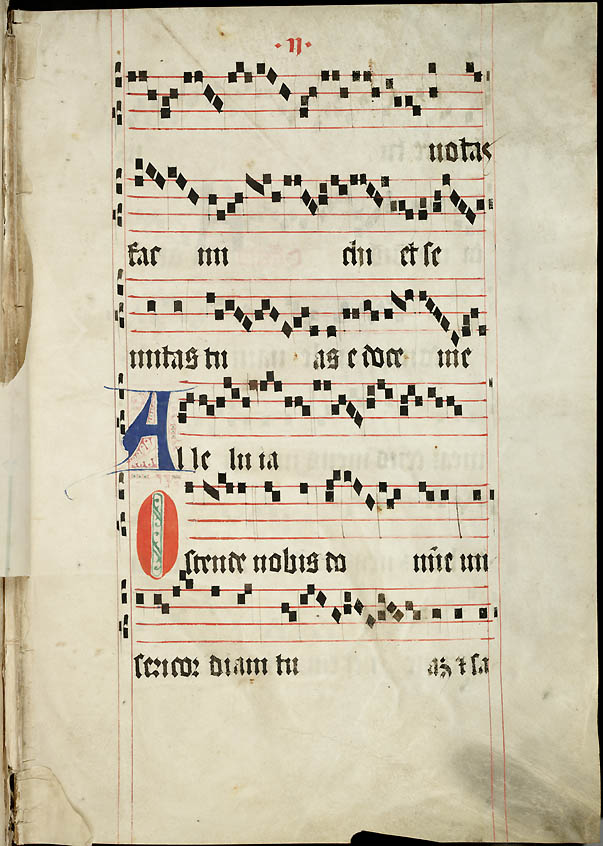 ·II·
notas
fac mi chi et se
mitas tu as e doce me
Alle lu ia
Ostende nobis do mīe mi
sericor diam tu aȝ ⁊ sa